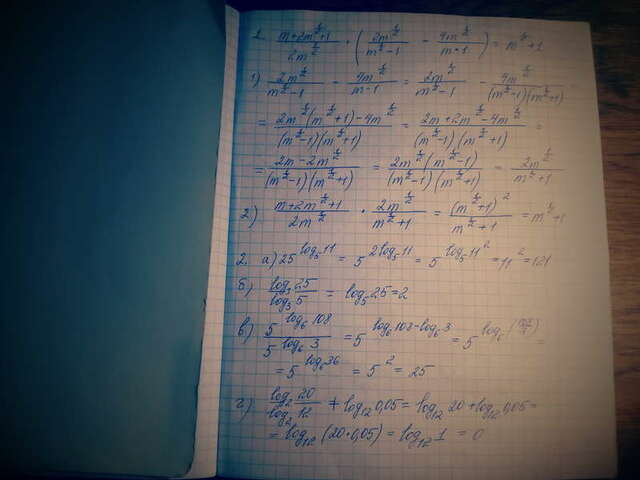 1. (m+2m^(1/2)+1)/(2m^(1/2)) · (2m^(1/2)/(m^(1/2)-1) - 4m^(1/2)/(m-1)) = m^(1/2)+1
1) 2m^(1/2)/(m^(1/2)-1) - 4m^(1/2)/(m-1) = 2m^(1/2)/(m^(1/2)-1) - 4m^(1/2)/((m^(1/2)-1)(m^(1/2)+1)) =
= (2m^(1/2)(m^(1/2)+1)-4m^(1/2))/((m^(1/2)-1)(m^(1/2)+1)) = (2m+2m^(1/2)-4m^(1/2))/((m^(1/2)-1)(m^(1/2)+1)) =
= (2m-2m^(1/2))/((m^(1/2)-1)(m^(1/2)+1)) = 2m^(1/2)(m^(1/2)-1)/((m^(1/2)-1)(m^(1/2)+1)) = 2m^(1/2)/(m^(1/2)+1)
2) (m+2m^(1/2)+1)/(2m^(1/2)) · 2m^(1/2)/(m^(1/2)+1) = (m^(1/2)+1)^2/(m^(1/2)+1) = m^(1/2)+1
2. а) 25^(log₅11) = 5^(2log₅11) = 5^(log₅11^2) = 11^2 = 121
б) log₃25/log₃5 = log₅25 = 2
в) 5^(log₆108)/5^(log₆3) = 5^(log₆108-log₆3) = 5^(log₆(108/3)) =
= 5^(log₆36) = 5^2 = 25
г) log₂20/log₂12 + log₁₂0,05 = log₁₂20 + log₁₂0,05 =
= log₁₂(20·0,05) = log₁₂1 = 0